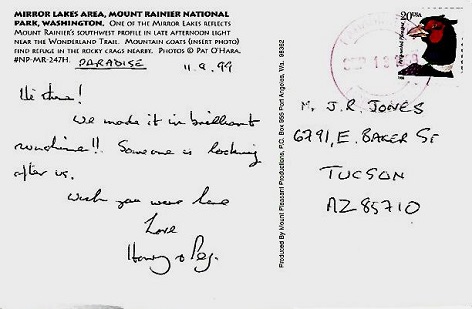 MIRROR LAKES AREA, MOUNT RAINIER NATIONAL
PARK, WASHINGTON. ONE OF THE MIRROR LAKES REFLECTS
MOUNT RAINIER'S SOUTHWEST PROFILE IN LATE AFTERNOON LIGHT
NEAR THE WONDERLAND TRAIL. MOUNTAIN GOATS (INSERT PHOTO)
FIND REFUGE IN THE ROCKY CRAGS NEARBY. PHOTOS © PAT O'HARA.
#NP-MR-247H. PARADISE 11.9.99
Hi there!
We made it in brilliant
sunshine!! Someone is looking
after us.
Wish you were here
Love
Harry & Peg.
Produced by Mount Pleasant Productions, P.O. Box 955 Port Angeles, Wa. 98362
20 USA
Ring-necked Pheasant
SEP 13
M. J.R. JONES
6291, E. BAKER ST
TUCSON
AZ 85710